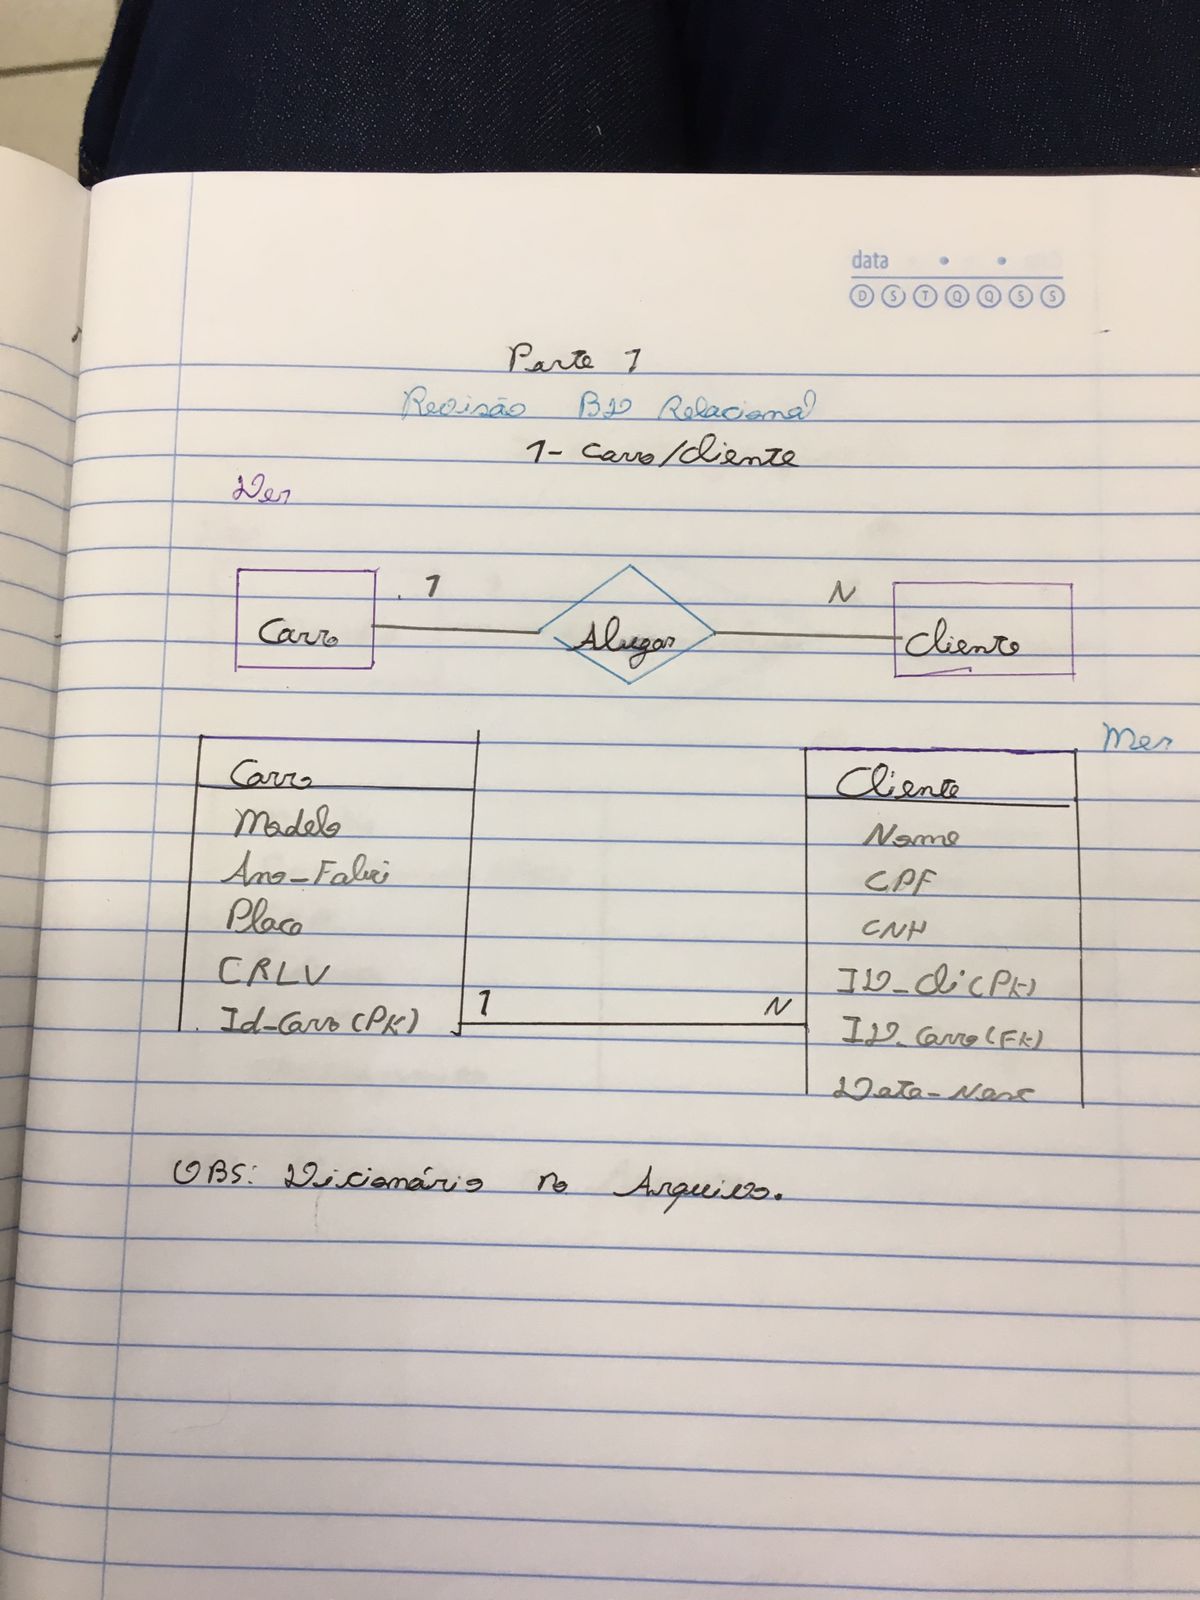 data
D S T Q Q S S
Parte 1
Revisão BD Relacional
1- Carro/Cliente
Der
Carro
1
Alugar
N
Cliente
Mer
Carro
Modelo
Ano-Fabri
Placa
CRLV
Id-Carro (PK)
1
N
Cliente
Nome
CPF
CNH
ID_Cli (PK)
ID_Carro (FK)
Data-Nasc
OBS: Dicionário no Arquivo.